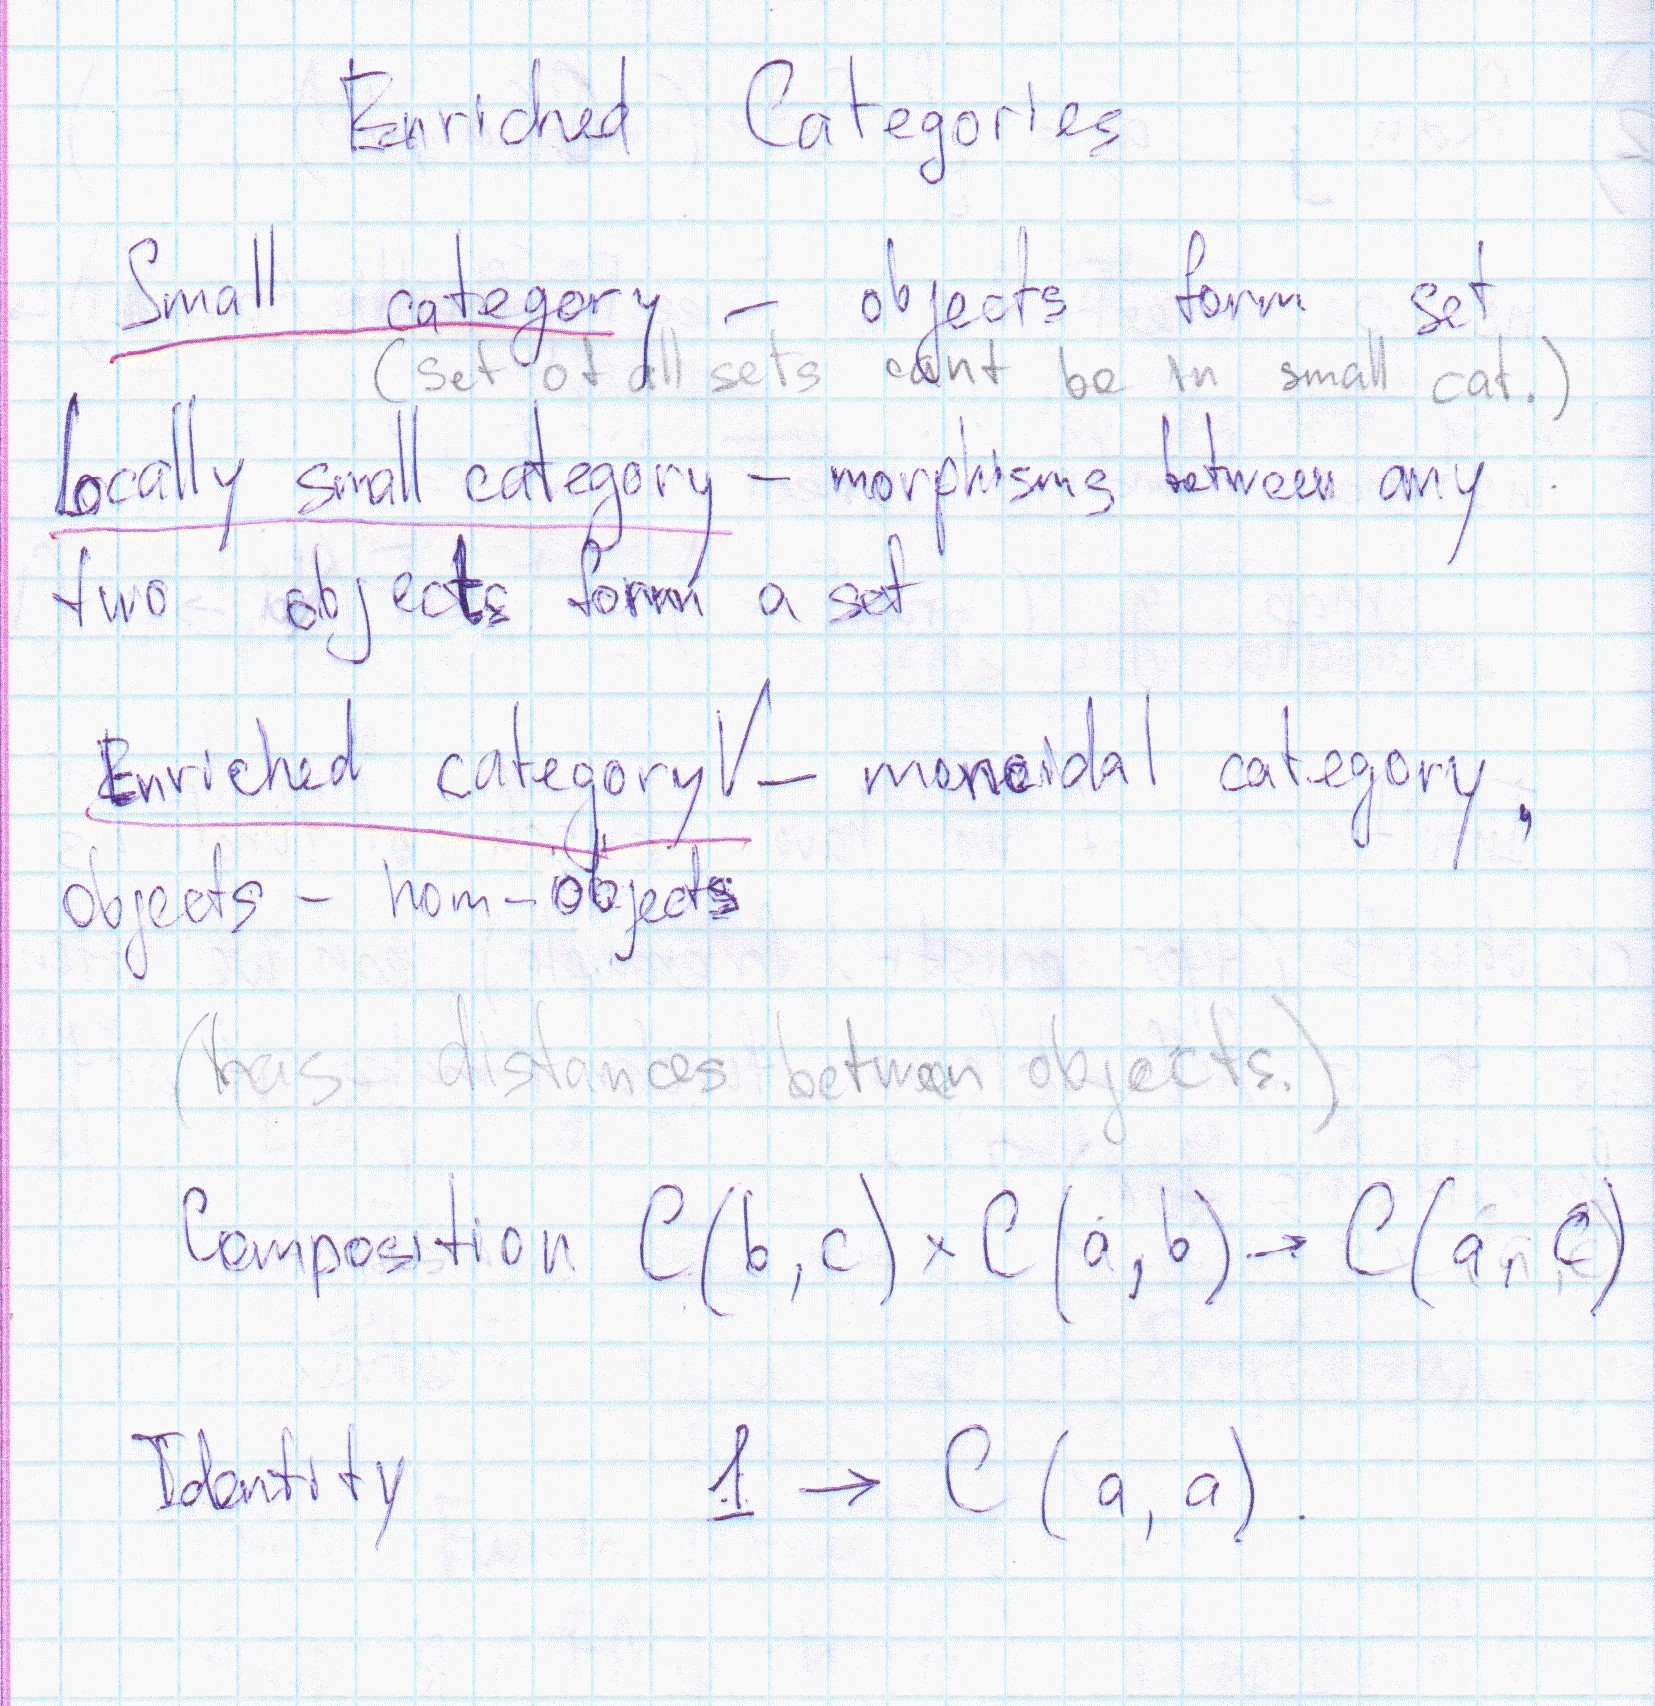 Enriched Categories
Small category – objects form set
(set of all sets cant be in small cat.)
Locally small category – morphisms between any
two objects form a set
Enriched category V – monoidal category,
objects – hom-objects
(has distances between objects.)
Composition C(b,c) × C(a,b) → C(a,c)
Identity 1 → C(a,a).